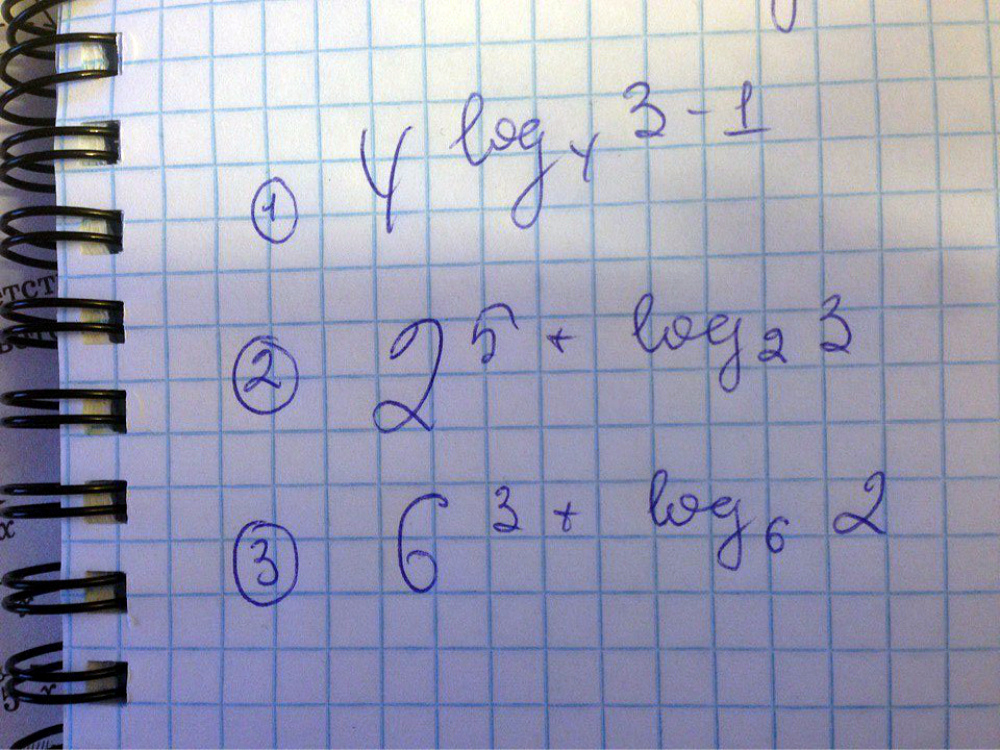 ① 4^(log₄ 3 - 1)
② 2^(5 + log₂ 3)
③ 6^(3 + log₆ 2)